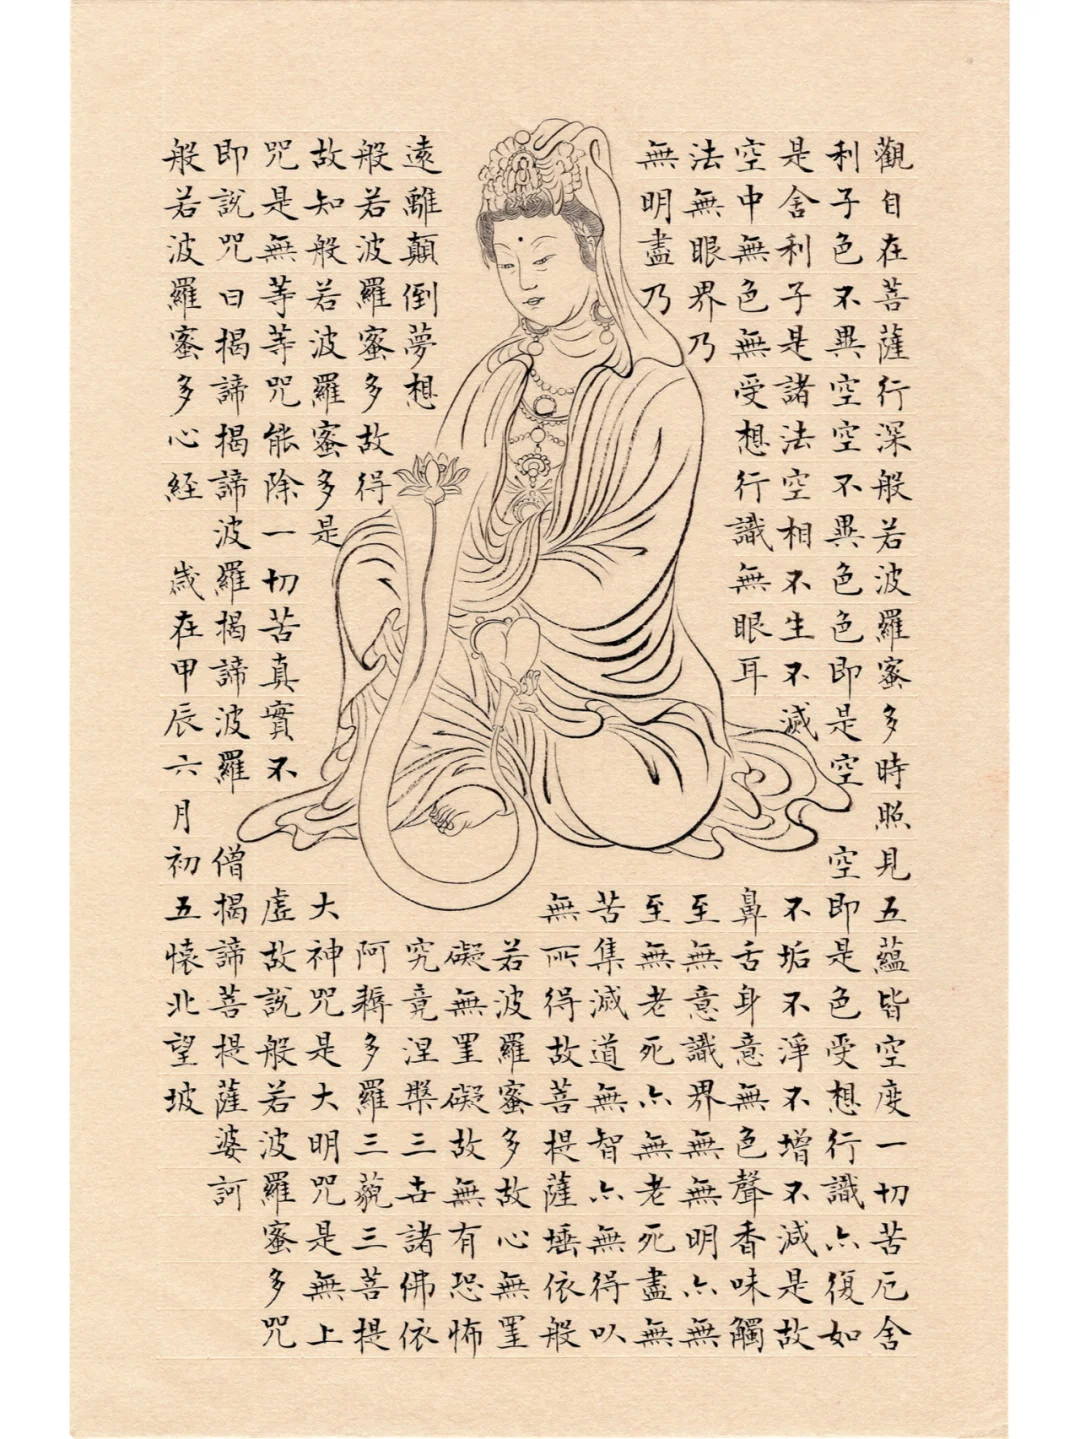 觀自在菩薩行深般若波羅蜜多時照見五蘊皆空度一切苦厄舍
利子色不異空空不異色色即是空
空即是色受想行識亦復如
是舍利子是諸法空相不生不滅
不垢不淨不增不減是故
空中無色無受想行識無眼耳
鼻舌身意無色聲香味觸
法無眼界乃
至無意識界無無明亦無
無明盡乃
至無老死亦無老死盡無
苦集滅道無智亦無得以
無所得故菩提薩埵依般
若波羅蜜多故心無罣
礙無罣礙故無有恐怖
遠離顛倒夢想
究竟涅槃三世諸佛依
般若波羅蜜多故得
阿耨多羅三藐三菩提
故知般若波羅蜜多是
大神咒是大明咒是無上
咒是無等等咒能除一切苦真實不
虛故說般若波羅蜜多咒
即說咒曰揭諦揭諦波羅揭諦波羅
僧揭諦菩提薩婆訶
般若波羅蜜多心經
歲在甲辰六月初五懷北望坡